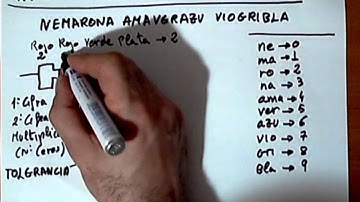 NEMARONA AMAVGRAZU VIOGRIBLA
Rojo Rojo Verde Plata → 2
2
1ª Cifra
2ª Cifra
Multipli
(Nº Ceros)
TOLERANCIA
ne → 0
ma → 1
ro → 2
na → 3
ama → 4
ver → 5
azu → 6
vio → 7
gri → 8
bla → 9